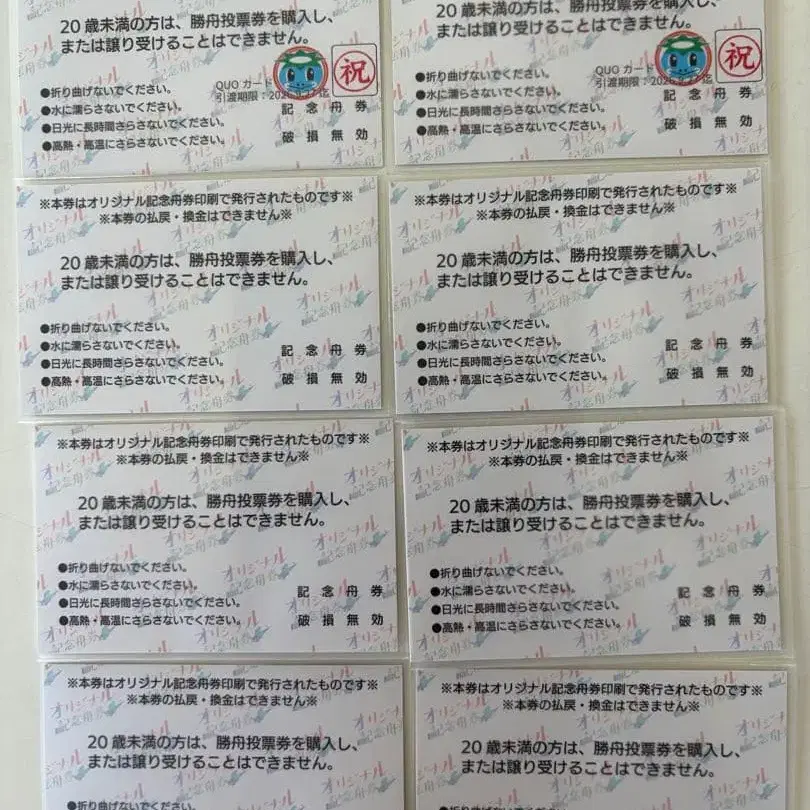 20歳未満の方は、勝舟投票券を購入し、
または譲り受けることはできません。
●折り曲げないでください。
●水に濡らさないでください。
●日光に長時間さらさないでください。
●高熱・高温にさらさないでください。
QUOカード
引渡期限:202
迄
祝
記念舟券
破損無効
20歳未満の方は、勝舟投票券を購入し、
または譲り受けることはできません。
●折り曲げないでください。
●水に濡らさないでください。
●日光に長時間さらさないでください。
●高熱・高温にさらさないでください。
QUOカード
引渡期限:202
迄
祝
記念舟券
破損無効
※本券はオリジナル記念舟券印刷で発行されたものです※
※本券の払戻・換金はできません※
20歳未満の方は、勝舟投票券を購入し、
または譲り受けることはできません。
●折り曲げないでください。
●水に濡らさないでください。
●日光に長時間さらさないでください。
●高熱・高温にさらさないでください。
記念舟券
破損無効
※本券はオリジナル記念舟券印刷で発行されたものです※
※本券の払戻・換金はできません※
20歳未満の方は、勝舟投票券を購入し、
または譲り受けることはできません。
●折り曲げないでください。
●水に濡らさないでください。
●日光に長時間さらさないでください。
●高熱・高温にさらさないでください。
記念舟券
破損無効
※本券はオリジナル記念舟券印刷で発行されたものです※
※本券の払戻・換金はできません※
20歳未満の方は、勝舟投票券を購入し、
または譲り受けることはできません。
●折り曲げないでください。
●水に濡らさないでください。
●日光に長時間さらさないでください。
●高熱・高温にさらさないでください。
記念舟券
破損無効
※本券はオリジナル記念舟券印刷で発行されたものです※
※本券の払戻・換金はできません※
20歳未満の方は、勝舟投票券を購入し、
または譲り受けることはできません。
●折り曲げないでください。
●水に濡らさないでください。
●日光に長時間さらさないでください。
●高熱・高温にさらさないでください。
記念舟券
破損無効
※本券はオリジナル記念舟券印刷で発行されたものです※
※本券の払戻・換金はできません※
20歳未満の方は、勝舟投票券を購入し、
または譲り受けることはできません。
●折り曲げないでください。
※本券はオリジナル記念舟券印刷で発行されたものです※
※本券の払戻・換金はできません※
20歳未満の方は、勝舟投票券を購入し、
または譲り受けることはできません。